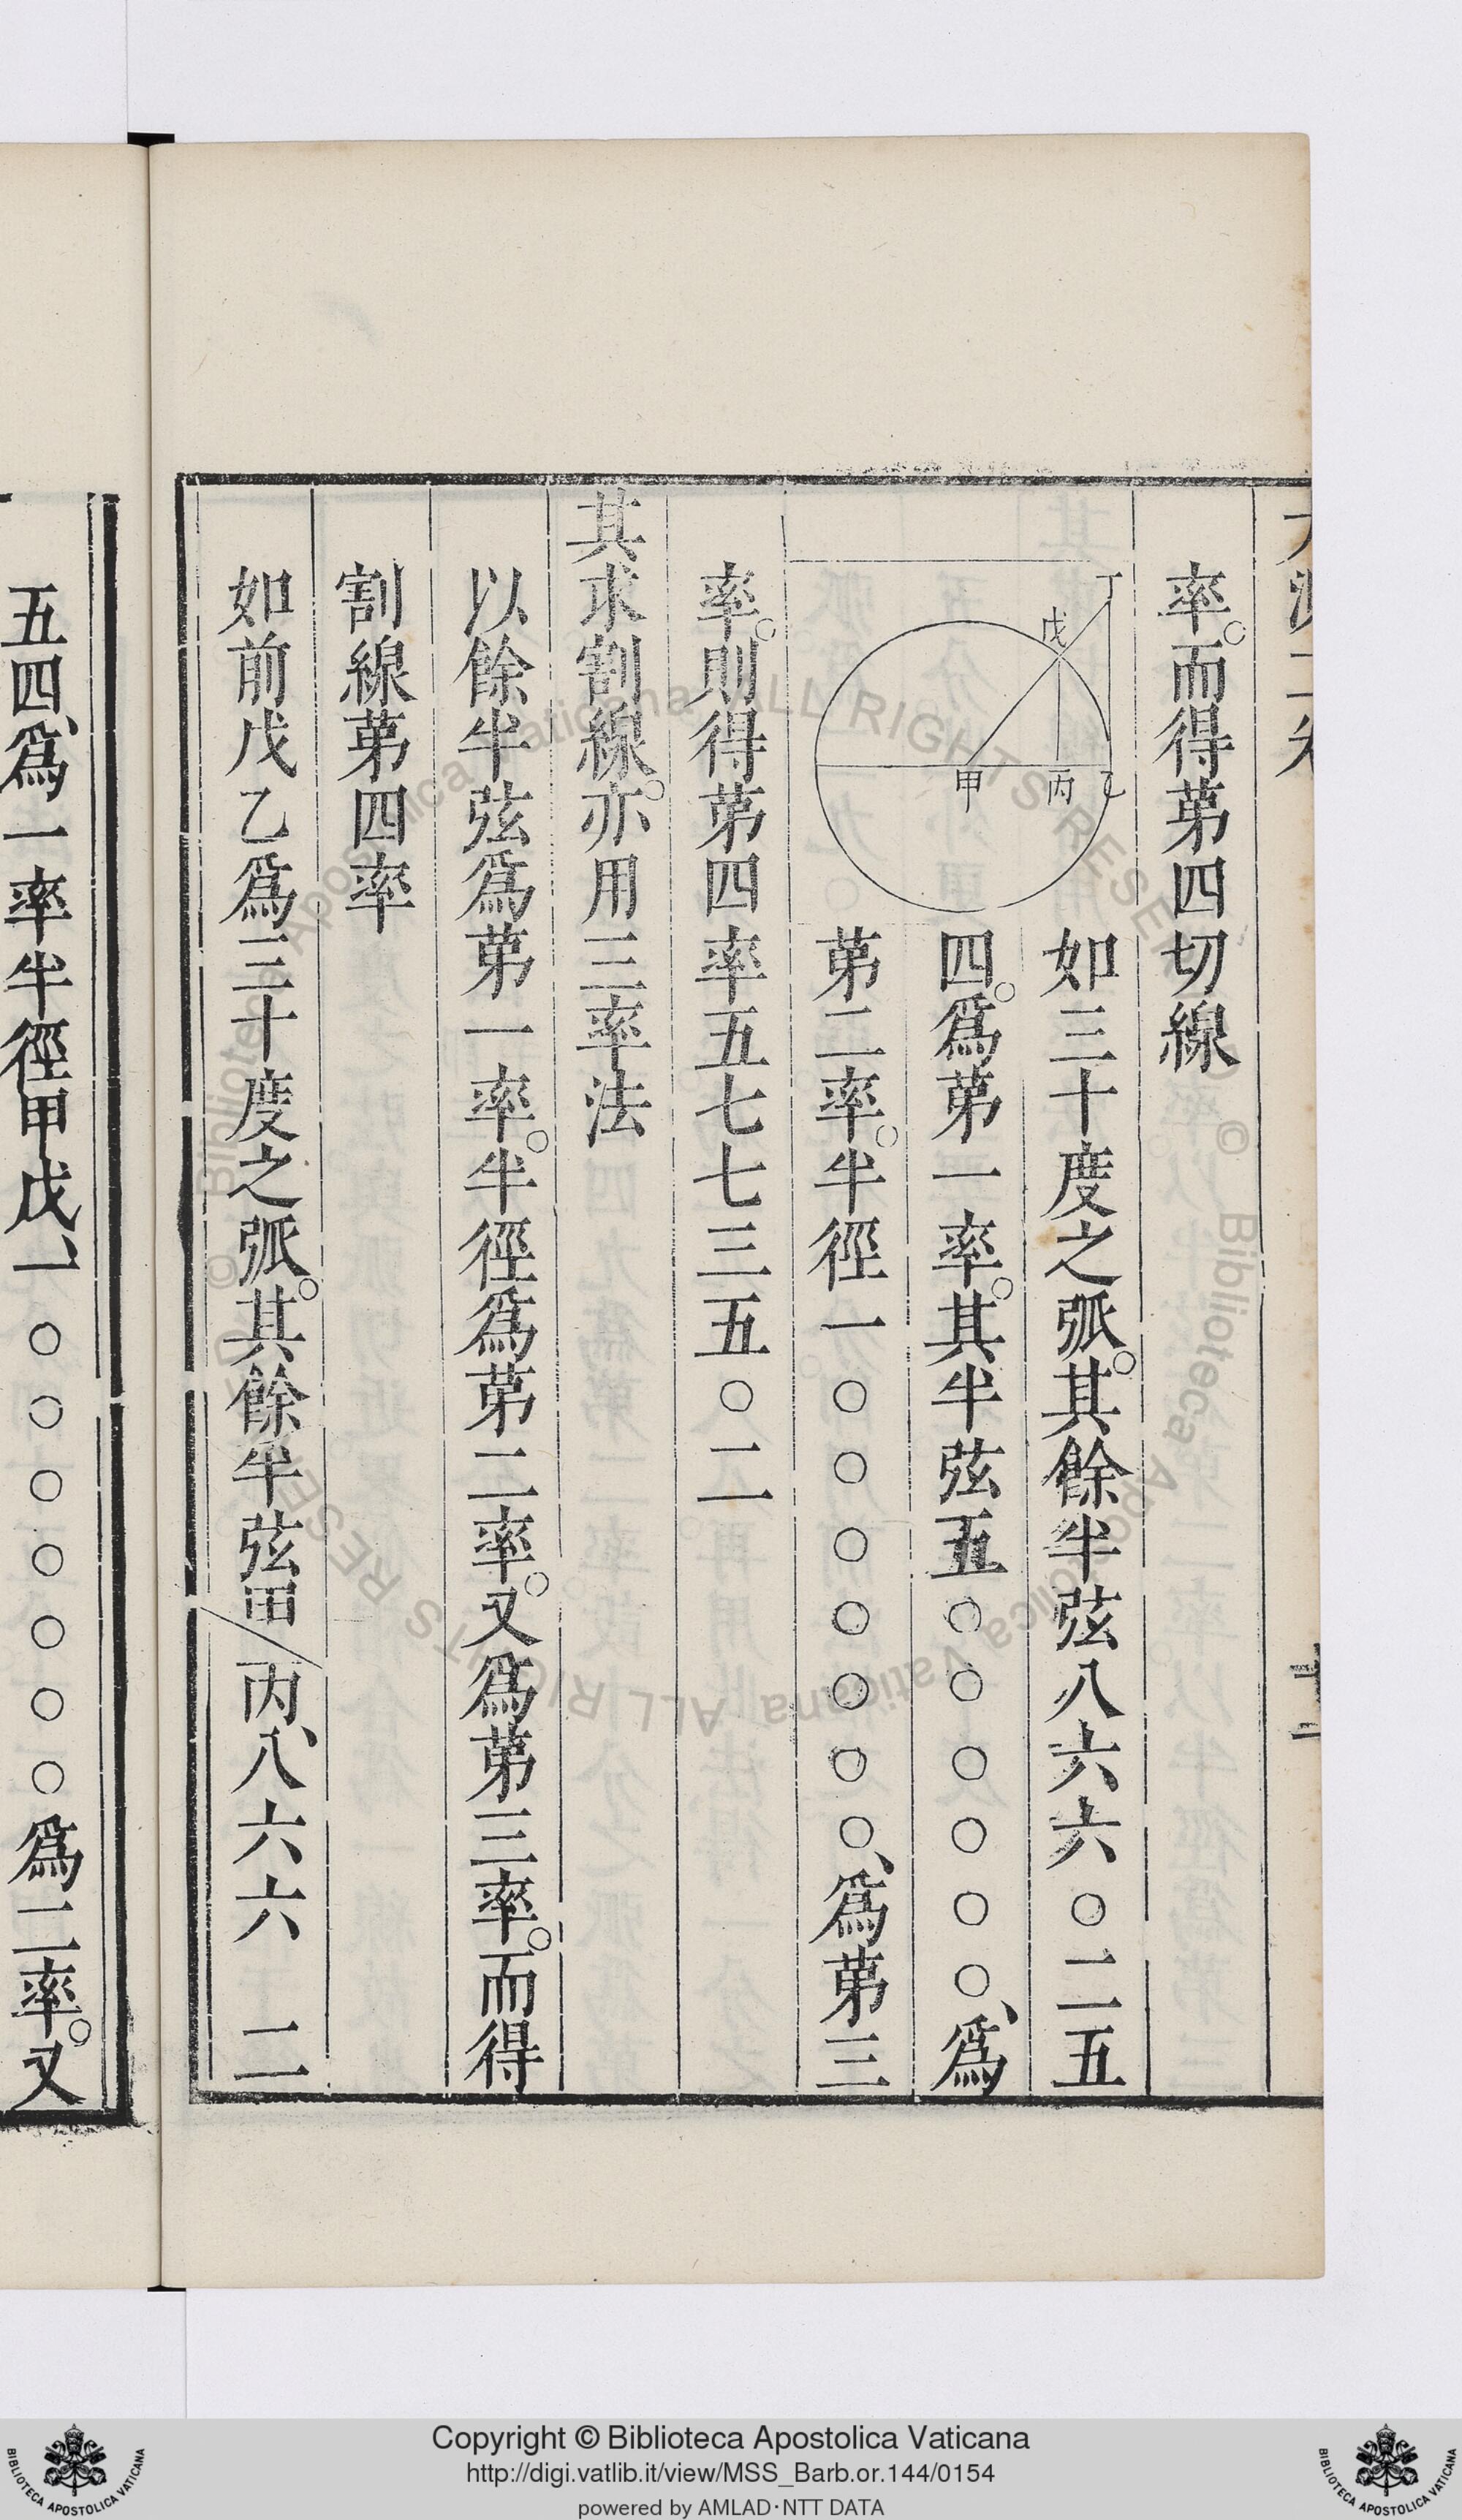 率。而得第四切線
丁
戊
甲
丙
乙
如三十度之弧。其餘半弦八六六〇二五
四。爲第一率。其半弦五〇〇〇〇〇〇、爲
第二率。半徑一〇〇〇〇〇〇〇、爲第三
率。則得第四率五七七三五〇二
其求割線。亦用三率法
以餘半弦爲第一率。半徑爲第二率。又爲第三率。而得
割線第四率
如前戊乙爲三十度之弧。其餘半弦甲丙、八六六 二
五四、爲一率半徑甲戊、一〇〇〇〇〇〇〇爲二率。又
Copyright © Biblioteca Apostolica Vaticana
http://digi.vatlib.it/view/MSS_Barb.or.144/0154
powered by AMLAD·NTT DATA
BIBLIOTECA APOSTOLICA VATICANA
BIBLIOTECA APOSTOLICA VATICANA